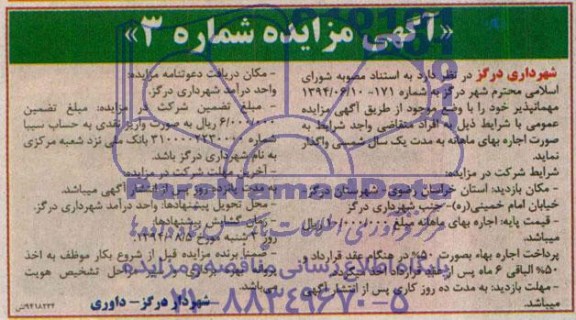 «آگهی مزایده شماره ۳»
شهرداری درگز در نظر دارد به استناد مصوبه شورای
اسلامی محترم شهر درگز به شماره ۱۷۱- ۱۳۹۴/۰۶/۱۰
مهمانپذیر خود را با وضع موجود از طریق آگهی مزایده
عمومی با شرایط ذیل به افراد متقاضی واجد شرایط به
صورت اجاره بهای ماهانه به مدت یک سال شمسی واگذار
نماید.
شرایط شرکت در مزایده:
- مکان بازدید: استان خراسان رضوی - شهرستان درگز
خیابان امام خمینی(ره)- جنب شهرداری درگز
- قیمت پایه: اجاره بهای ماهانه مبلغ ریال
میباشد.
پرداخت اجاره بهاء بصورت ۵۰% در هنگام عقد قرارداد و
۵۰% الباقی ۶ ماه پس از عقد قرارداد اخذ میگردد.
- مهلت بازدید: به مدت ده روز کاری پس از انتشار آگهی
میباشد.
- مکان دریافت دعوتنامه مزایده:
واحد درآمد شهرداری درگز.
- مبلغ تضمین شرکت در مزایده: مبلغ تضمین
۶/۰۰۰/۰۰۰ ریال به صورت واریز نقدی به حساب سیبا
شماره بانک ملی نزد شعبه مرکزی
به نام شهرداری درگز باشد.
- آخرین مهلت شرکت در مزایده:
به مدت پانزده روز پس از انتشار آگهی میباشد.
- محل تحویل پیشنهادها: واحد درآمد شهرداری درگز.
- زمان گشایش پیشنهادها:
روز شنبه مورخ ۱۳۹۴/۰۸/۰۵
- ضمناً برنده مزایده قبل از شروع بکار موظف به اخذ
هویت
میباشد.
شهردار درگز- داوری
۹۴۱۸۲۳۴/ش
ParsNamadData
مرکز فرآوری اطلاعات پارس نماد داده ها
پایگاه اطلاع رسانی مناقصه و مزایده
۰۲۱-۸۸۳۴۹۶۷۰-۵